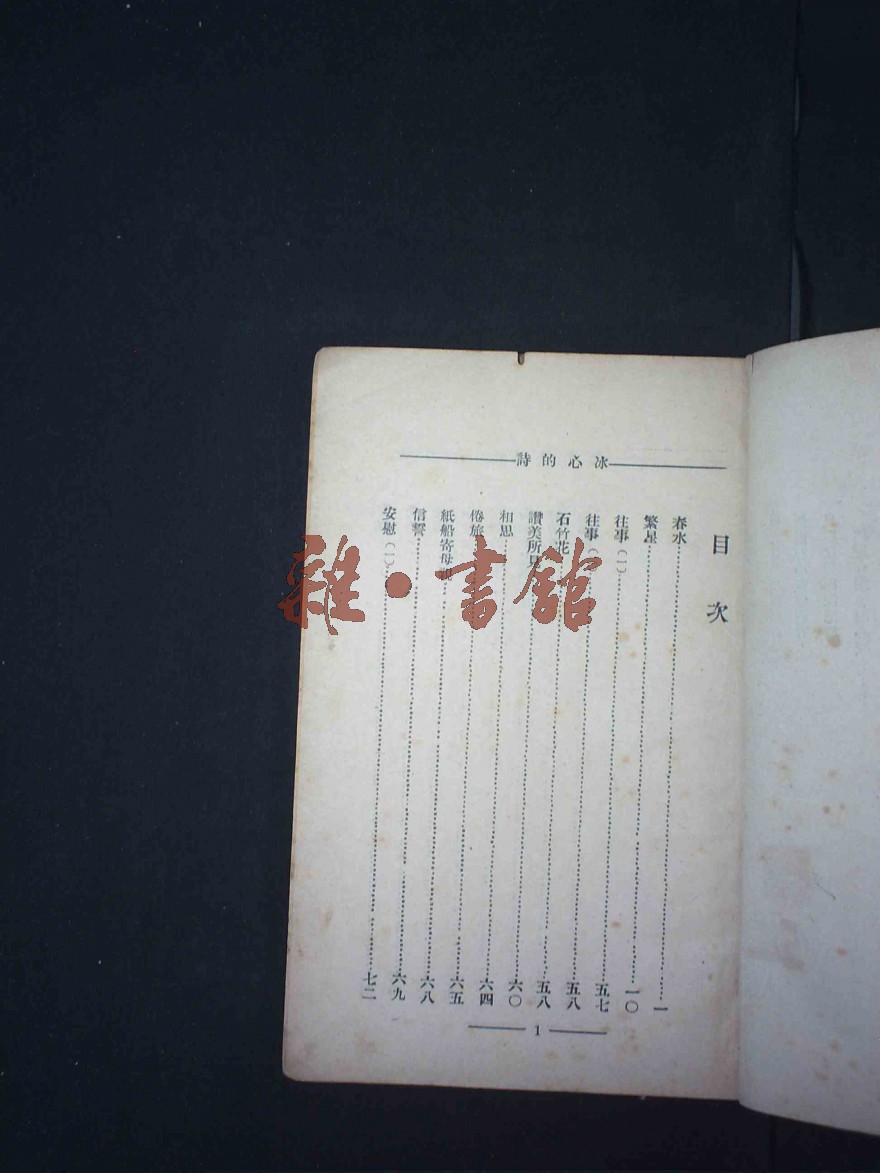 冰心的詩
目次
春水……一
繁星……一〇
往事(一)……五七
往事(……五八
石竹花……五八
讚美所見……六〇
相思……六四
倦旅……六五
紙船寄母……六八
信誓……六九
安慰(一)……七二
1
雜·書館